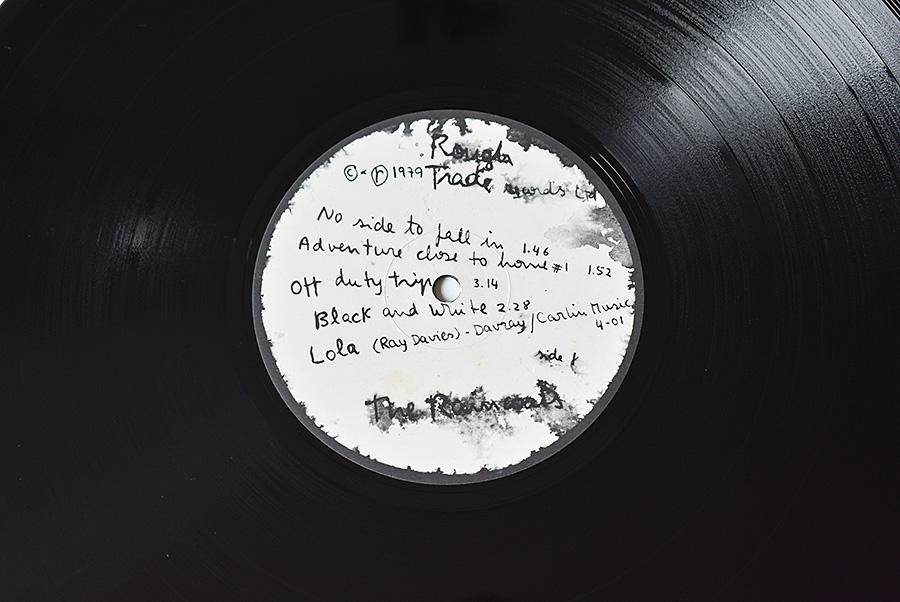 Rough
© + ℗ 1979 Trade records Ltd
No side to fall in 1.46
Adventure close to home #1 1.52
Off duty trip 3.14
Black and White 2.28
Lola (Ray Davies) - Davray/Carlin Music
4-01
side
The Raincoats